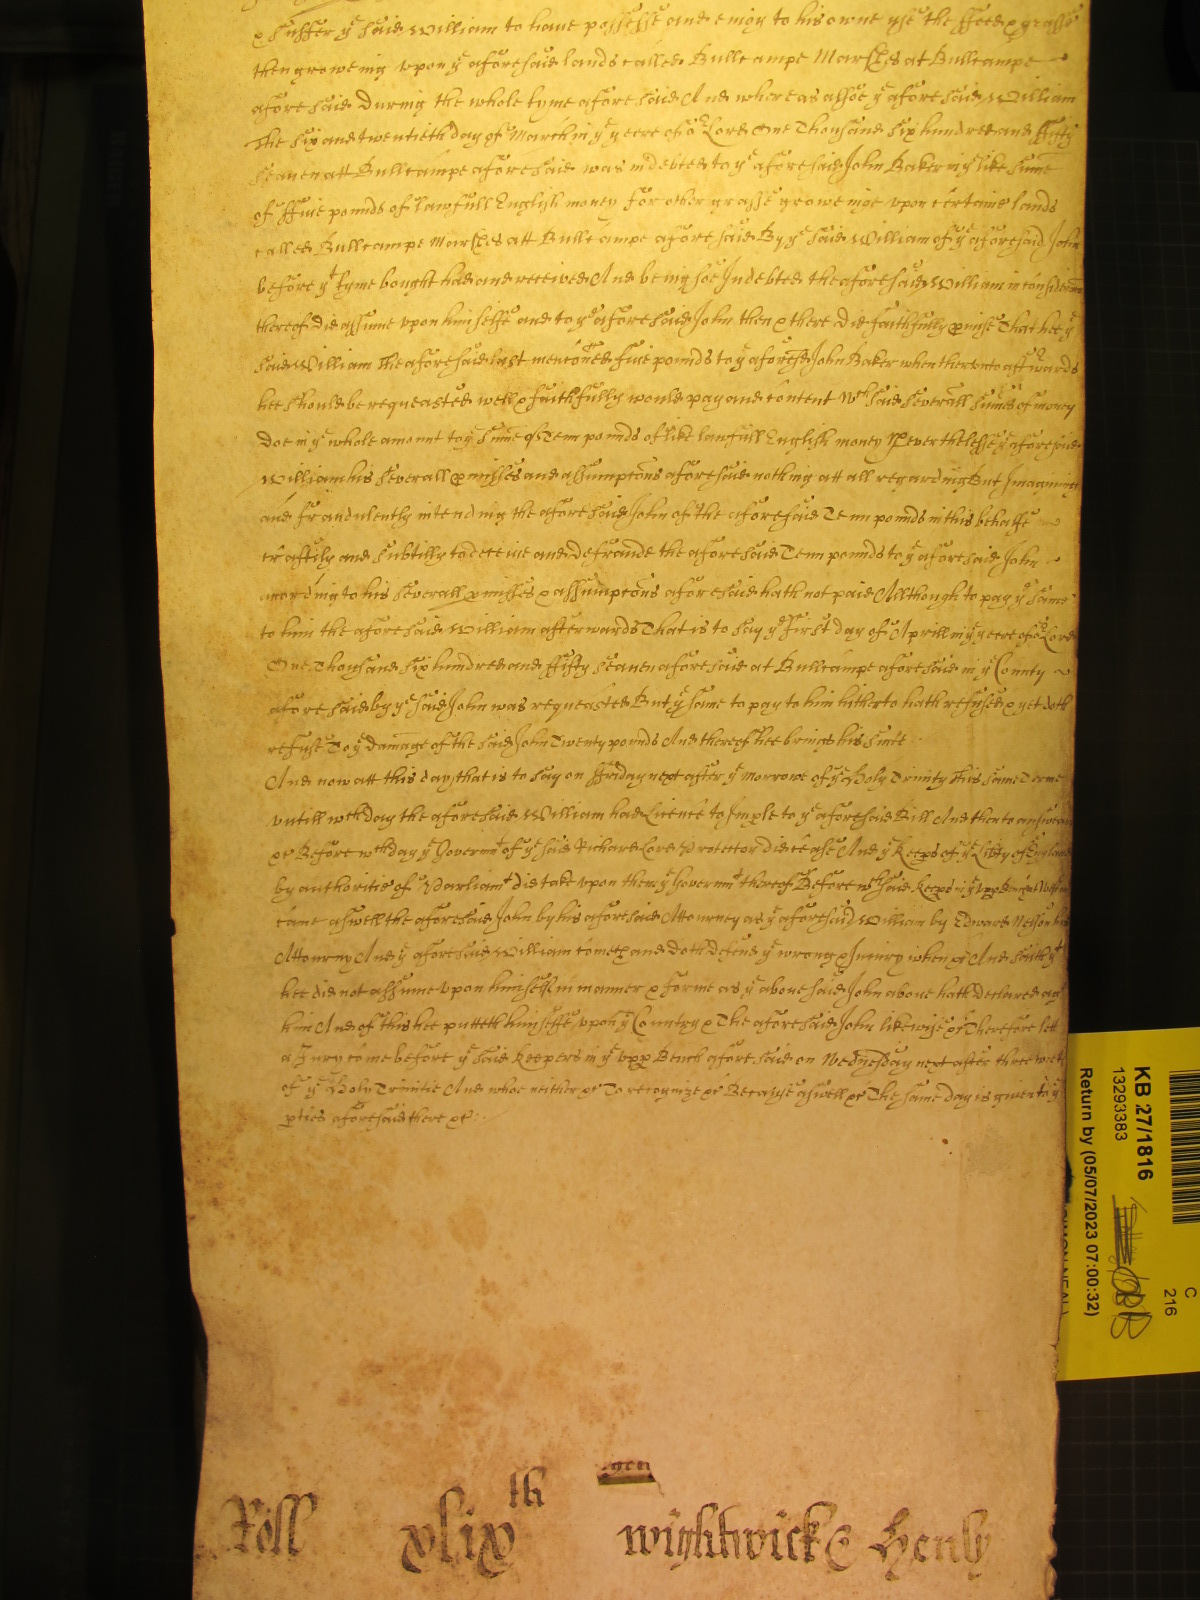 & suffer ye said William to haue possesse and enioy to his owne vse the ffeed & grasse
then groweing vpon ye aforesaid lands called Bullcampe Marshes at Bullcampe
aforesaid during the whole tyme aforesaid And whereas alsoe ye aforesaid William
the six and twentieth day of March in ye yeere of or Lord One Thousand six hundred and ffifty
seauen att Bullcampe aforesaid was indebted to ye aforesaid John Baker in ye like sume
of ffiue pounds of lawfull English money for other grasse groweinge vpon certaine lands
called Bullcampe Marshes att Bullcampe aforesaid By ye said William of ye aforesaid John
before yt tyme bought had and receiued And being soe Indebted the aforesaid William in consideracon
thereof did assume vpon himselfe and to ye aforesaid John then & there did faithfully pmise That hee ye
said William the aforesaid last menconed fiue pounds to ye aforesd John Baker when therevnto afterwards
hee should be requeasted well & faithfully would pay and content Wch said seuerall sumes of money
doe in ye whole amount to ye sume of Tenn pounds of like lawfull English money Neverthelesse ye aforesaid
William his seuerall pmisses and assumptons aforesaid nothing att all regarding But Imagining
and fraudulently intending the aforesaid John of the aforesaid Tenn pounds in this behalfe
craftily and subtilly to deceiue and defraude the aforesaid Tenn pounds to ye aforesaid John
according to his seuerall pmisses & assumptons aforesaid hath not paid Allthough to pay ye same
to him the aforesaid William afterwards That is to say ye First day of Aprill in ye yeere of or Lord
One Thousand six hundred and ffifty seauen aforesaid at Bullcampe aforesaid in ye County
aforesaid by ye said John was requeasted But ye same to pay to him hitherto hath refused & yet doth
refuse To ye damage of the said John Twenty pounds And thereof hee brings his suite
And now att this day that is to say on ffriday next after ye morrowe of ye Holy Trinity this same Terme
vntill wch day the aforesaid William had Licence to Imple to ye aforesaid Bill And then to answeare
&c Before wch day ye Governmt of ye said Richard Lord Protector did cease And ye Keeps of ye Libty of England
by authoritie of Parliamt did take vpon them ye Governmt thereof Before wch said Keeps in ye vpp Bench
came aswell the aforesaid John by his aforesaid Attourney as ye aforesaid William by Edward Nelson his
Attourney And ye aforesaid William cometh and doth defend ye wrong & Iniury when &c And saith yt
hee did not assume vpon himself in manner & forme as ye abouesaid John aboue hath declared agt
him And of this hee putteth himselfe vpon ye Country & The aforesaid John likewise &c Therefore lett
a Jury come before ye said Keepers in ye vpp Bench aforesaid on Wednesday next after three weeks
of ye Holy Trinitie And whoe neither &c To recognize &c Because aswell &c The same day is giuen to ye
pties aforesaid there &c
Roll xlixth Wightwicke Henly
KB 27/1816
13293383
Return by (05/07/2023 07:00:32)
C
216